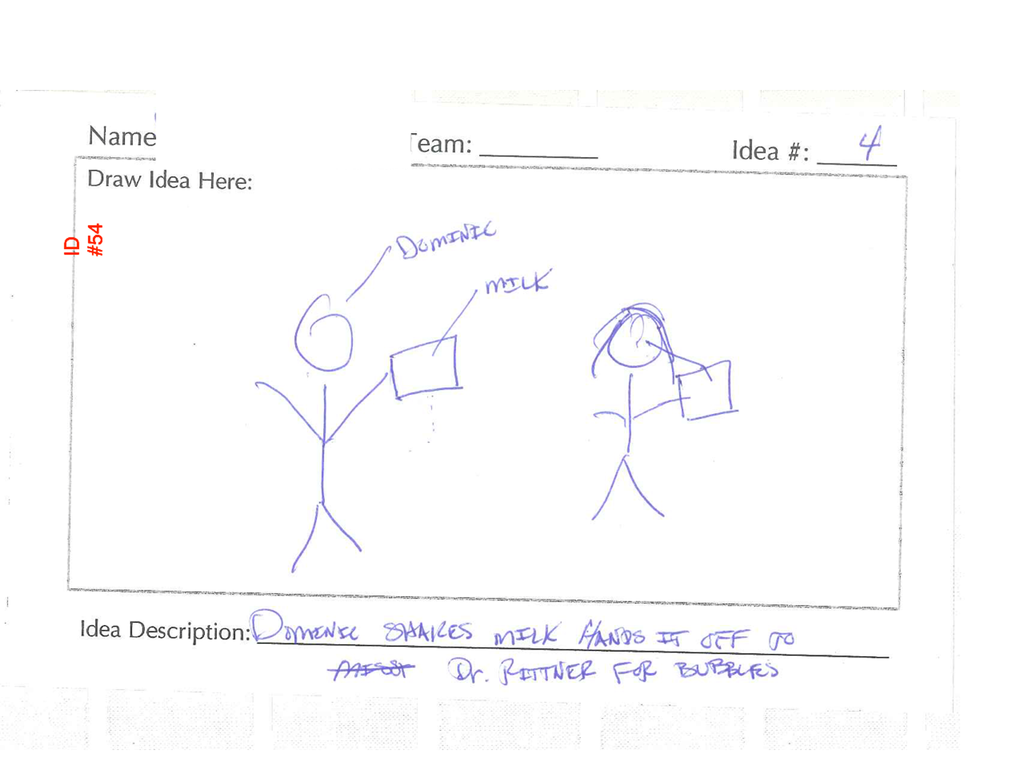 Name
Team:
Idea #: 4
Draw Idea Here:
ID
#54
DOMINIC
MILK
Idea Description: DOMINIC SHAKES MILK HANDS IT OFF TO
Dr. RITTNER FOR BUBBLES